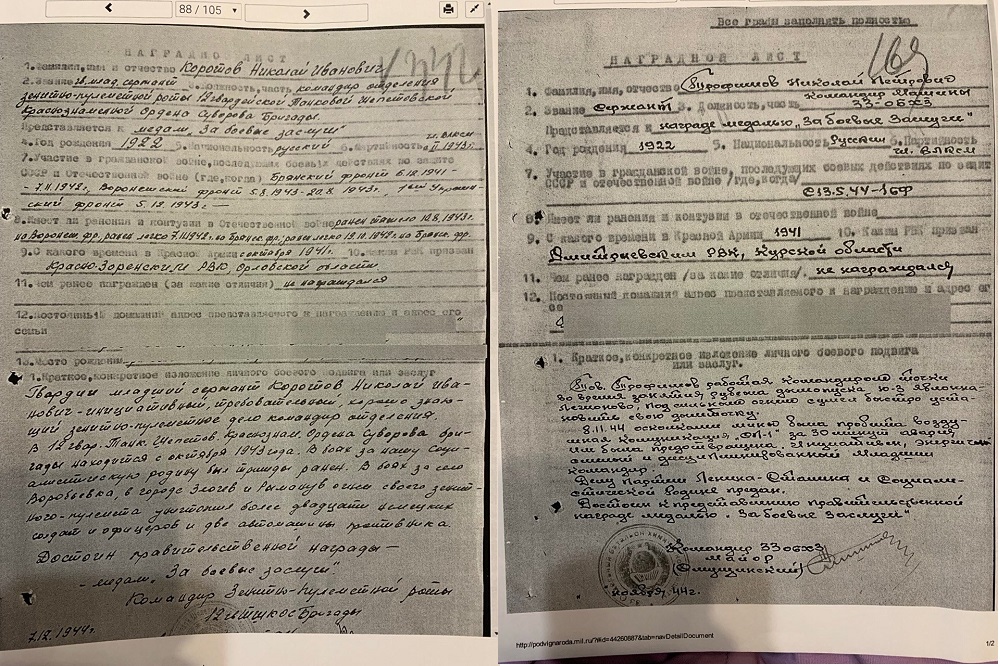 88 / 105
НАГРАДНО ЛИСТ
1. Фамилия, имя и отчество Коротов Николай Иванович
2. Звание гв. млад. сержант 3. Должность, часть командир отделения
зенитно-пулеметной роты 12 гвардейской Танковой Шепетовской
Краснознаменной Ордена Суворова Бригады.
Представляется к медали „За боевые заслуги"
4. Год рождения 1922 5. Национальность русский 6. Партийность чл. ВЛКСМ с II.1943г.
7. Участие в гражданской войне, последующих боевых действиях по защите
СССР и Отечественной войне (где, когда) Брянский фронт 6.12.1941-
- 7.11.1942г, Воронежский фронт 5.8.1943-22.8.1943г. 1й Украин-
ский фронт 5.12.1943г. —
8. Имеет ли ранения и контузии в Отечественной войне ранен тяжело 12.8.1943г.
на Воронеж. фр, ранен легко 7.11.1942г. на Брянс. фр, ранен легко 19.10.1942г. на Брянс. фр.
9. С какого времени в Красной Армии с октября 1941г. 10. Каким РВК призван
Красно-Зоренским РВК, Орловской области
11. Чем ранее награжден (за какие отличия) не награждался
12. Постоянный домашний адрес представляемого к награждению и адрес его
семьи
13. Место рождения
1. Краткое, конкретное изложение личного боевого подвига или заслуг
Гвардии младший сержант Коротов Николай Ива-
нович-инициативный, требовательный, хорошо знаю-
щий зенитно-пулеметное дело командир отделения.
В 12 гвар. Танк. Шепетов. Краснознам. Ордена Суворова бри-
гады находится с октября 1943 года. В боях за нашу Соци-
алистическую родину был трижды ранен. В боях за село
Воробьевка, в городе Злочев и Рыманув огнем своего зенит-
ного-пулемета уничтожил более двадцати немецких
солдат и офицеров и две автомашины противника.
Достоин правительственной награды —
- медали „За боевые заслуги".
Командир Зенитно-Пулеметной роты
12 гвтшкос Бригады
7.12.1944г.
Все графы заполнять полностью
169
НАГРАДНОЙ ЛИСТ
1. Фамилия, имя, отчество Трофимов Николай Петрович
2. Звание Сержант 3. Должность, часть Командир Машины
33-ОБХЗ
Представляется к награде медалью „За боевые Заслуги"
4. Год рождения 1922 5. Национальность Русский 6. Партийность
чл. ВЛКСМ
7. Участие в гражданской войне, последующих боевых действиях по защит
СССР и отечественной войне /где, когда/
С 13.5.44-1БФ
8. Имеет ли ранения и контузии в отечественной войне
9. С какого времени в Красной Армии 1941 10. Каким РВК призван
Дмитриевским РВК, Курской области
11. Чем ранее награжден /за какие отличия/ не награждался
12. Постоянный домашний адрес представляемого к награждению и адрес ег
се
1. Краткое, конкретное изложение личного боевого подвига
или заслуг.
Тов. Трофимов работая командиром точки
во время занятия рубежа дымопуска ю-з Яблонна-
Легионово, под сильным огнем сумел быстро уста-
новить свою дымточку.
8.11.44 осколками мины была пробита возду-
шная коммуникация за 30 минут авария
им была предотвращена. Инициативный, энергич-
ный и дисциплинированный младший
командир.
Делу Партии Ленина-Сталина и Социали-
стической Родине предан.
Достоин к представлению правительственной
награде медалью „За боевые Заслуги"
Командир 33 обхз
майор
ноября 44г.
http://podvignaroda.mil.ru/?#id=44260887&tab=navDetailDocument
1/2